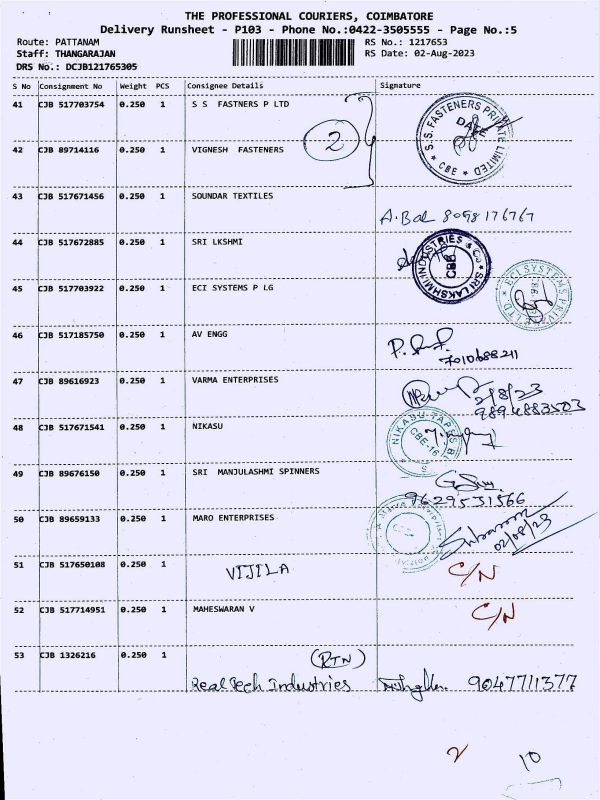 THE PROFESSIONAL COURIERS, COIMBATORE
Delivery Runsheet - P103 - Phone No.:0422-3505555 - Page No.:5
Route: PATTANAM RS No.: 1217653
Staff: THANGARAJAN RS Date: 02-Aug-2023
DRS No.: DCJB121765305
S No Consignment No Weight PCS Consignee Details Signature
41 CJB 517703754 0.250 1 S S FASTNERS P LTD S.S. FASTENERS PRIVATE LIMITED CBE DATE
2
42 CJB 89714116 0.250 1 VIGNESH FASTENERS
43 CJB 517671456 0.250 1 SOUNDAR TEXTILES
A.Bal 8098176767
44 CJB 517672885 0.250 1 SRI LKSHMI SRI LAKSHMI INDUSTRIES & Co CBE
45 CJB 517703922 0.250 1 ECI SYSTEMS P LG ECI SYSTEMS PRIVATE LTD
46 CJB 517185750 0.250 1 AV ENGG
7010688211
47 CJB 89616923 0.250 1 VARMA ENTERPRISES 2/8/23
9894883503
48 CJB 517671541 0.250 1 NIKASU NIKASU TAPES CBE-16
49 CJB 89676150 0.250 1 SRI MANJULASHMI SPINNERS
9629531566
50 CJB 89659133 0.250 1 MARO ENTERPRISES
02/08/23
51 CJB 517650108 0.250 1 VIJILA C/N
52 CJB 517714951 0.250 1 MAHESWARAN V C/N
53 CJB 1326216 0.250 1 (RTN)
Real Tech Industries 9047711377
2 10